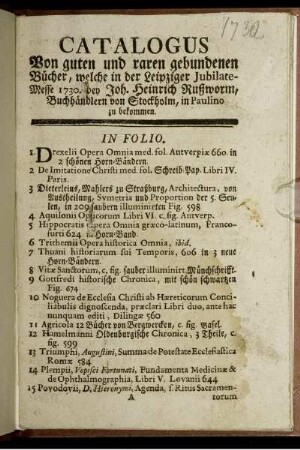 1730
CATALOGUS
Von guten und raren gebundenen
Bücher, welche in der Leipziger Jubilate-
Messe 1730. bey Joh. Heinrich Rußworm,
Buchhändlern von Stockholm, in Paulino
zu bekommen.
IN FOLIO.
1 Drexelii Opera Omnia med. fol. Antverpiæ 660. in
2 schönen Horn-Bändern.
2 De Imitatione Christi med. fol. Schreib-Pap. Libri IV.
Paris.
3 Dieterleins, Mahlers zu Straßburg, Architectura, von
Austheilung, Symetria und Proportion der 5. Seu-
len, in 209 sauber illuminirten Fig. 598
4 Aquilonii Opticorum Libri VI. c. fig. Antverp.
5 Hippocratis Opera Omnia græco-latinum, Franco-
furti 624 Horn-Band.
6 Trithemii Opera historica Omnia, ibid.
7 Thuani historiarum sui Temporis, 606 in 3 neue
Horn-Bändern.
8 Vitæ Sanctorum, c. fig. sauber illuminirt. Münchschrifft.
9 Gottfredi historische Chronica, mit schön schwartzen
Fig. 674
10 Noguera de Ecclesia Christi ab Hæreticorum Conci-
liabulis dignoscenda, præclari Libri duo, ante hac
nunquam editi, Dilingæ 560
11 Agricola 12 Bücher von Bergwercken, c. fig. Basel.
12 Hamelmanni Oldenburgische Chronica, 3 Theile, c.
fig. 599
13 Triumphi, Augustini, Summa de Potestate Ecclesiastica
Romæ 584
14 Plempii, Vopisci Fortunati, Fundamenta Medicinæ &
de Ophthalmographia, Libri V. Lovanii 644
15 Povodovii, D. Hieronymi, Agenda, s. Ritus Sacramen-
A torum